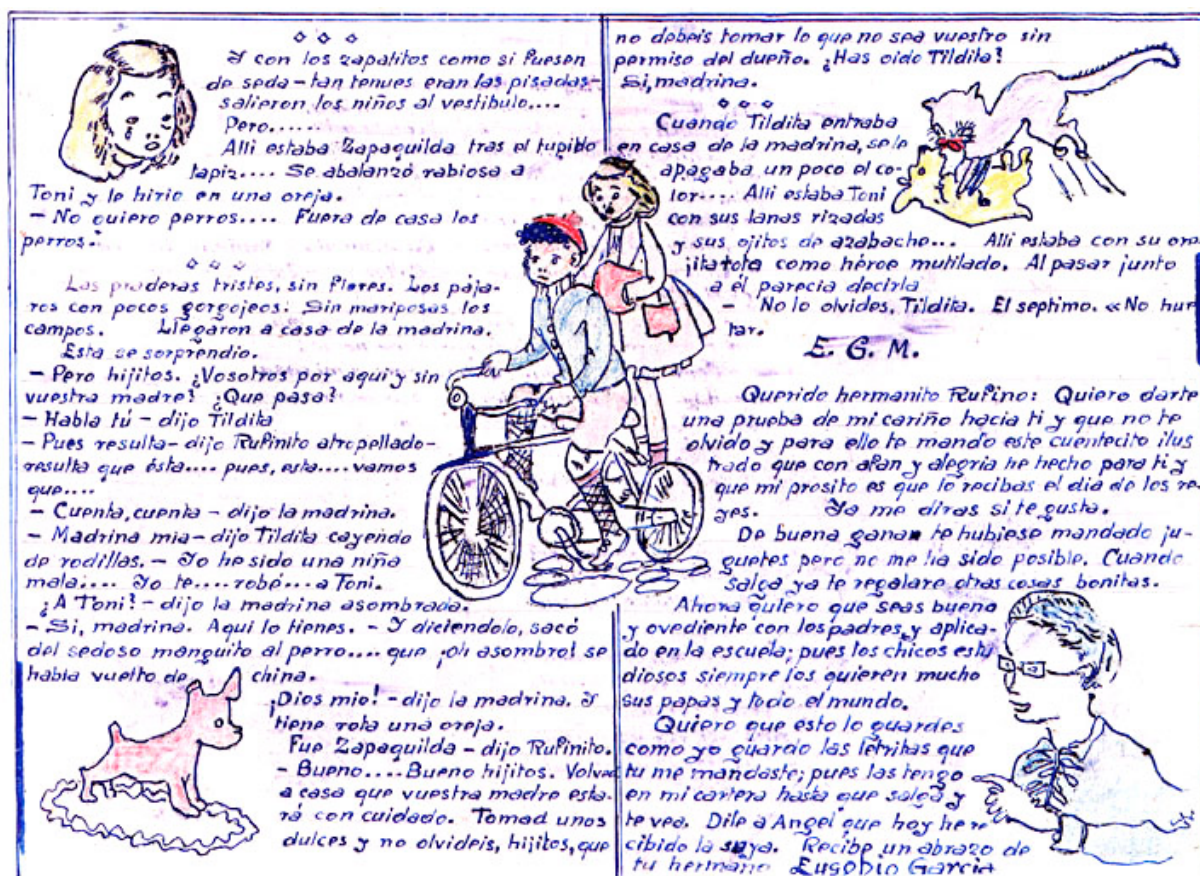 Y con los zapatitos como si fuesen
de seda - tan tenues eran las pisadas -
salieron los niños al vestibulo....
Pero......
Alli estaba Zapaquilda tras el tupido
tapiz.... Se abalanzó rabiosa a
Toni y le hirio en una oreja.
- No quiero perros.... Fuera de casa los
perros.
Las praderas tristes, sin flores. Los pája-
ros con pocos gorgojeos. Sin mariposas los
campos. Llegaron a casa de la madrina.
Esta se sorprendio.
- Pero hijitos. ¿Vosotros por aqui y sin
vuestra madre? ¿Que pasa?
- Habla tú - dijo Tildita
- Pues resulta - dijo Rufinito atropellado -
resulta que ésta.... pues, esta.... vamos
que....
- Cuenta, cuenta - dijo la madrina.
- Madrina mia - dijo Tildita cayendo
de rodillas. - Yo he sido una niña
mala.... Yo te.... robé.... a Toni.
¿A Toni? - dijo la madrina asombrada.
- Si, madrina. Aqui lo tienes. - Y diciendolo, sacó
del sedoso manguito al perro.... que ¡oh asombro! se
habia vuelto de china.
¡Dios mio! - dijo la madrina. Y
tiene rota una oreja.
Fue Zapaquilda - dijo Rufinito.
- Bueno.... Bueno hijitos. Volved
a casa que vuestra madre esta-
rá con cuidado. Tomad unos
dulces y no olvideis, hijitos, que
no debeis tomar lo que no sea vuestro sin
permiso del dueño. ¿Has oido Tildita?
Si, madrina.
Cuando Tildita entraba
en casa de la madrina, se le
apagaba un poco el co-
lor.... Alli estaba Toni
con sus lanas rizadas
y sus ojitos de azabache... Alli estaba con su ore
jita rota como héroe mutilado. Al pasar junto
a él parecia decirla
- No lo olvides, Tildita. El septimo. «No hur
tar.
E. G. M.
Querido hermanito Rufino: Quiero darte
una prueba de mi cariño hacia ti y que no te
olvido y para ello te mando este cuentecito ilus
trado que con afan y alegria he hecho para ti y
que mi prosito es que lo recibas el dia de los re-
yes. Ya me diras si te gusta.
De buena gana te hubiese mandado ju-
guetes pero no me ha sido posible. Cuando
salga ya te regalare otras cosas bonitas.
Ahora quiero que seas bueno
y ovediente con los padres, y aplica-
do en la escuela; pues los chicos estu
diosos siempre los quieren mucho
sus papas y todo el mundo.
Quiero que esto lo guardes
como yo guardo las letritas que
tu me mandaste; pues las tengo
en mi cartera hasta que salga y
te vea. Dile a Angel que hoy he re
cibido la suya. Recibe un abrazo de
tu hermano Eugenio Garcia